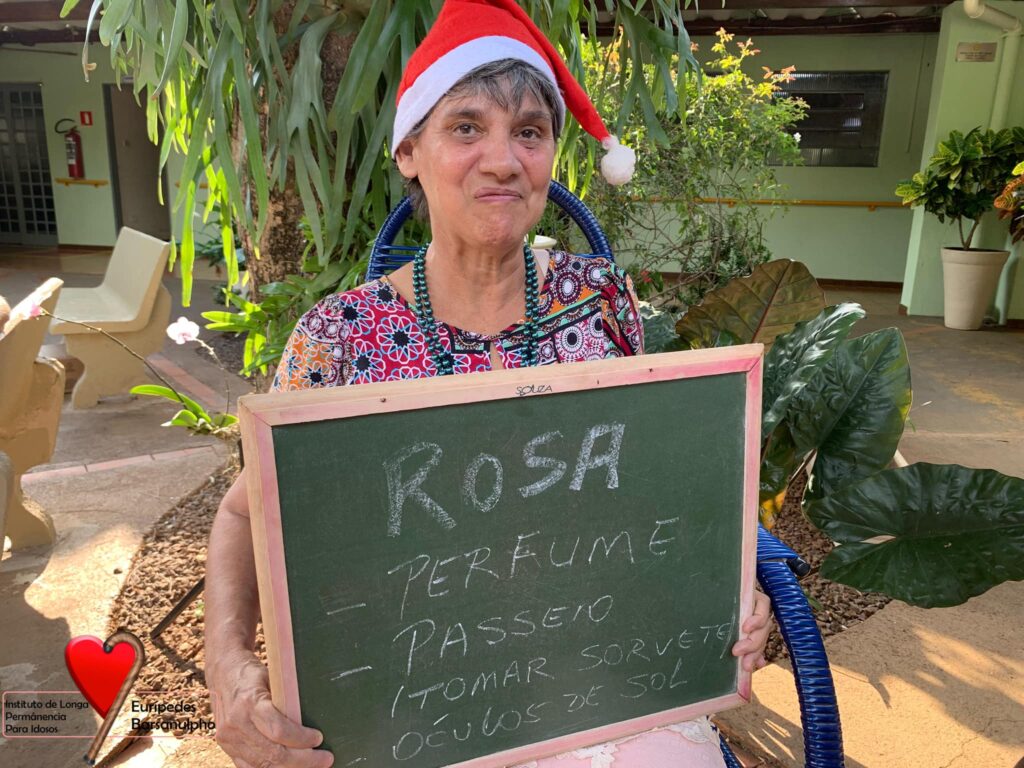 SOUZA
ROSA
- PERFUME
- PASSEIO
/TOMAR SORVETE
- OCÚLOS DE SOL
Instituto de Longa
Permânencia
Para Idosos
Eurípedes
Barsanulpho